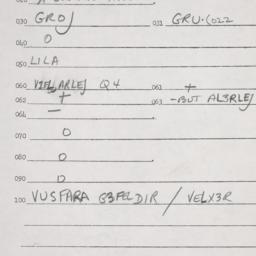 030 GROJ 031 GRU·(022
040 O
050 LILA
060 Q4 061 +
062 + 063 -BUT AL3RLEJ
064 –
070 O
080 O
090 O
100 VUSFARA G3FELDIR / VELX3R